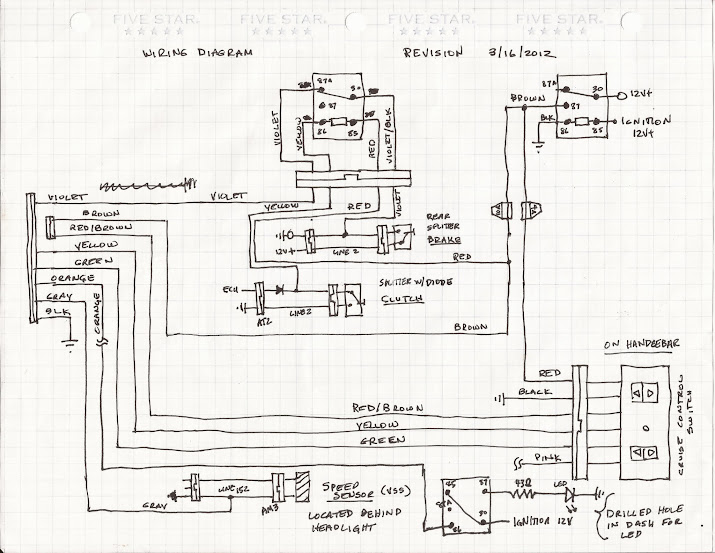 FIVE STAR.
FIVE STAR.
FIVE STAR.
FIVE STAR.
WIRING DIAGRAM
REVISION 3/16/2012
87A
30
87
86
85
VIOLET
YELLOW
RED
VIOLET/BLK
87A
30
87
86
85
12V+
IGNITION
12V+
BROWN
BLK
VIOLET
VIOLET
YELLOW
RED
VIOLET
BROWN
RED/BROWN
YELLOW
GREEN
ORANGE
GRAY
BLK
ORANGE
12V+
LINE 2
REAR
SPLITER
BRAKE
RED
ECU
AT2
LINE 2
SPLITTER W/DIODE
CLUTCH
BROWN
ON HANDLEBAR
RED
BLACK
RED/BROWN
YELLOW
GREEN
PINK
CRUISE CONTROL
SWITCH
GRAY
LINE 152
AM3
SPEED
SENSOR (VSS)
LOCATED BEHIND
HEADLIGHT
85
87
87A
86
30
43Ω
LED
IGNITION 12V
DRILLED HOLE
IN DASH FOR
LED